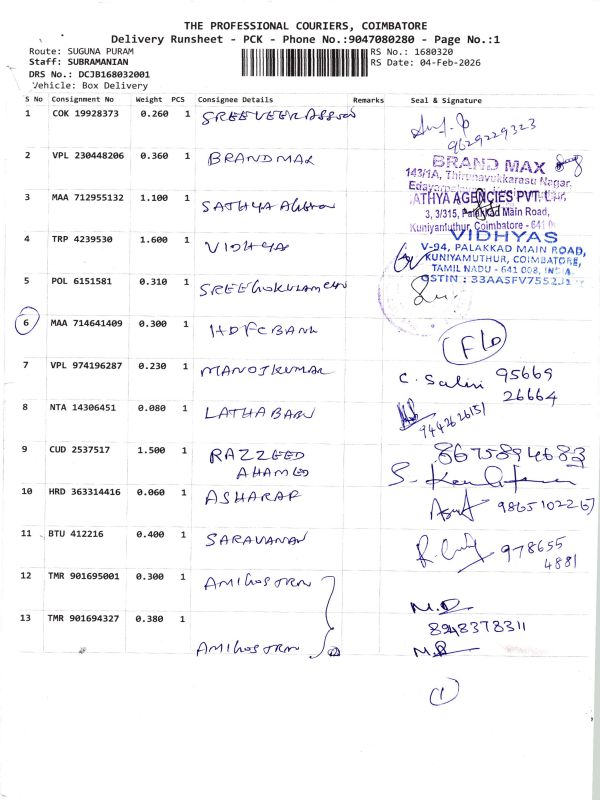 THE PROFESSIONAL COURIERS, COIMBATORE
Delivery Runsheet - PCK - Phone No.:9047080280 - Page No.:1
Route: SUGUNA PURAM
RS No.: 1680320
Staff: SUBRAMANIAN
RS Date: 04-Feb-2026
DRS No.: DCJB168032001
Vehicle: Box Delivery
S No Consignment No Weight PCS Consignee Details Remarks Seal & Signature
1 COK 19928373 0.260 1
9629229323
2 VPL 230448206 0.360 1 BRANDMAX
BRAND MAX
143/1A, Thirunavukkarasu Nagar,
3 MAA 712955132 1.100 1 SATHYA
ATHYA AGENCIES PVT. LTD.,
3, 3/315, Palakkad Main Road,
Kuniyamuthur, Coimbatore - 641
4 TRP 4239530 1.600 1 VIDHYA
VIDHYAS
V-94, PALAKKAD MAIN ROAD,
KUNIYAMUTHUR, COIMBATORE,
TAMIL NADU - 641 008, INDIA.
GSTIN : 33AASFV7552
5 POL 6151581 0.310 1
6 MAA 714641409 0.300 1 HDFC BANK
7 VPL 974196287 0.230 1 MANOJKUMAR
C. Salini 95669
26664
8 NTA 14306451 0.080 1 LATHA BABU
9442626151
9 CUD 2537517 1.500 1 RAZZEED
AHAMED
8675894683
10 HRD 363314416 0.060 1 ASHARAF
9865102267
11 BTU 412216 0.400 1 SARAVANAN
978655
4881
12 TMR 901695001 0.300 1
M.D
8948378311
13 TMR 901694327 0.380 1
1